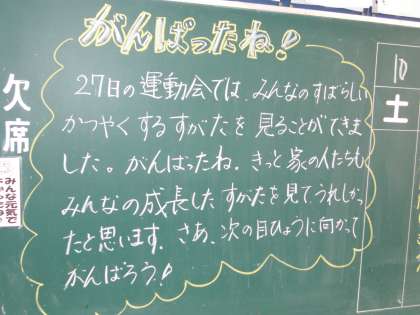 がんばったね!
27日の運動会では、みんなのすばらしい
かつやくするすがたを見ることができま
した。がんばったね。きっと家の人たちも
みんなの成長したすがたを見て、うれしかっ
たと思います。さあ、次の目ひょうに向かって
がんばろう!
欠席
みんな元気で
10
土